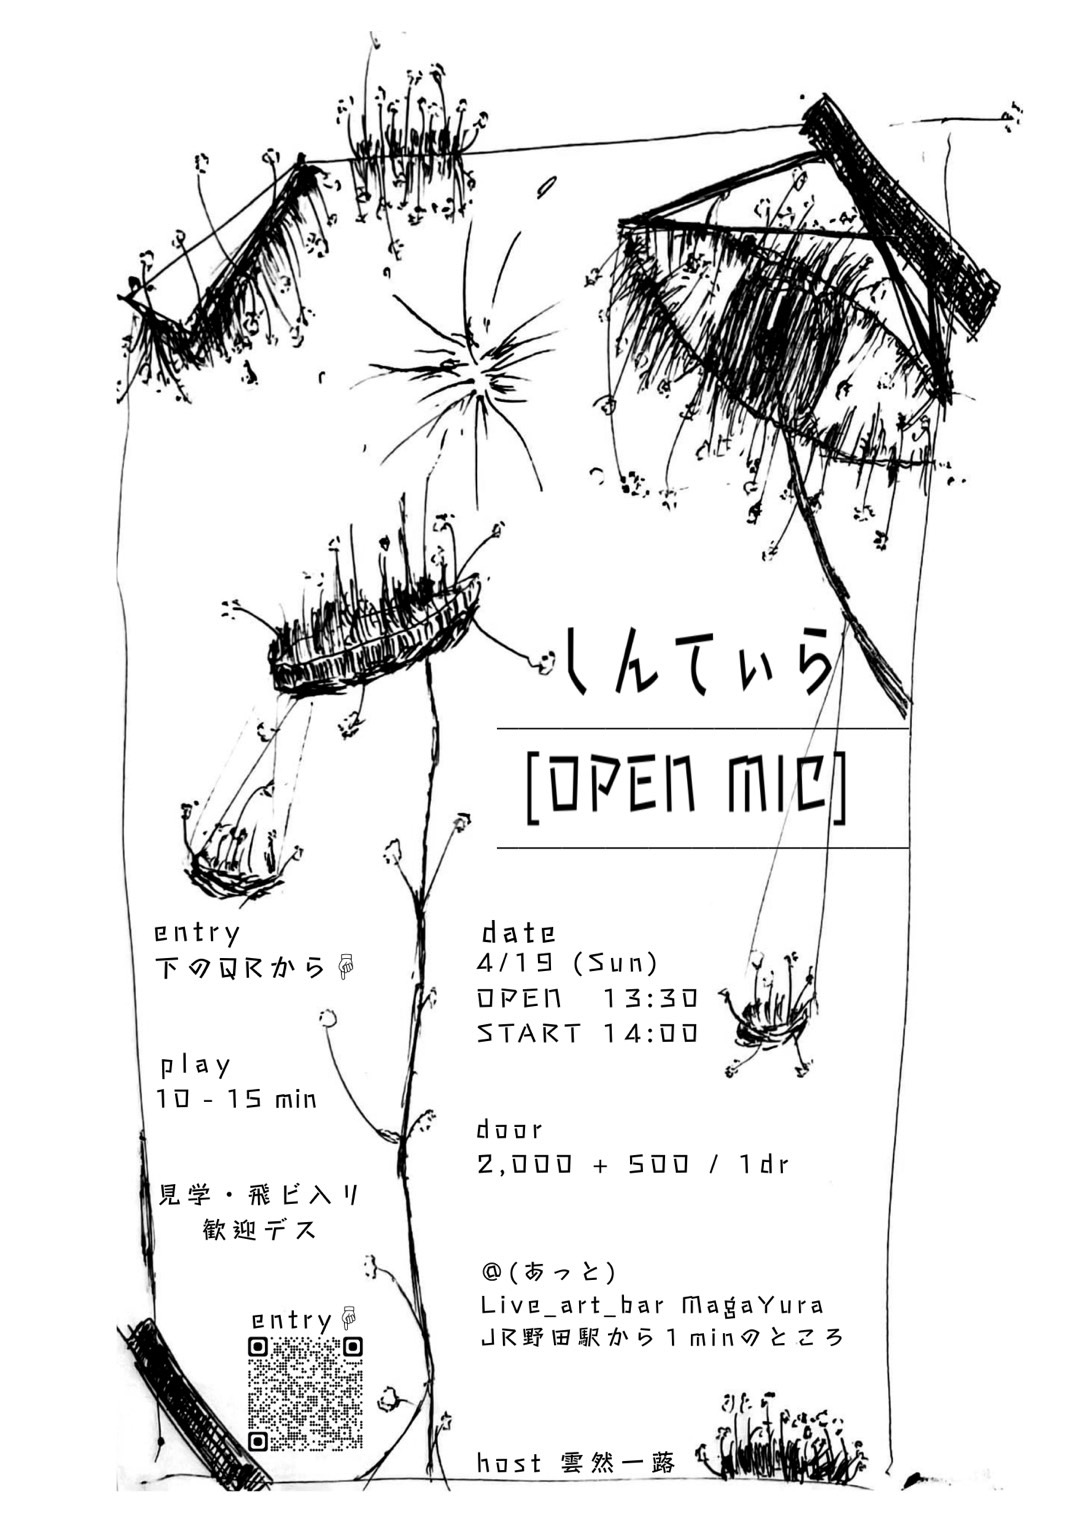 しんてぃら
[OPEN MIC]
entry
下のQRから☟
play
10 - 15 min
見学・飛ビ入リ
歓迎デス
entry☟
date
4/19 (Sun)
OPEN 13:30
START 14:00
door
2,000 + 500 / 1dr
@(あっと)
Live_art_bar MagaYura
JR野田駅から1minのところ
host 雲然一蕗